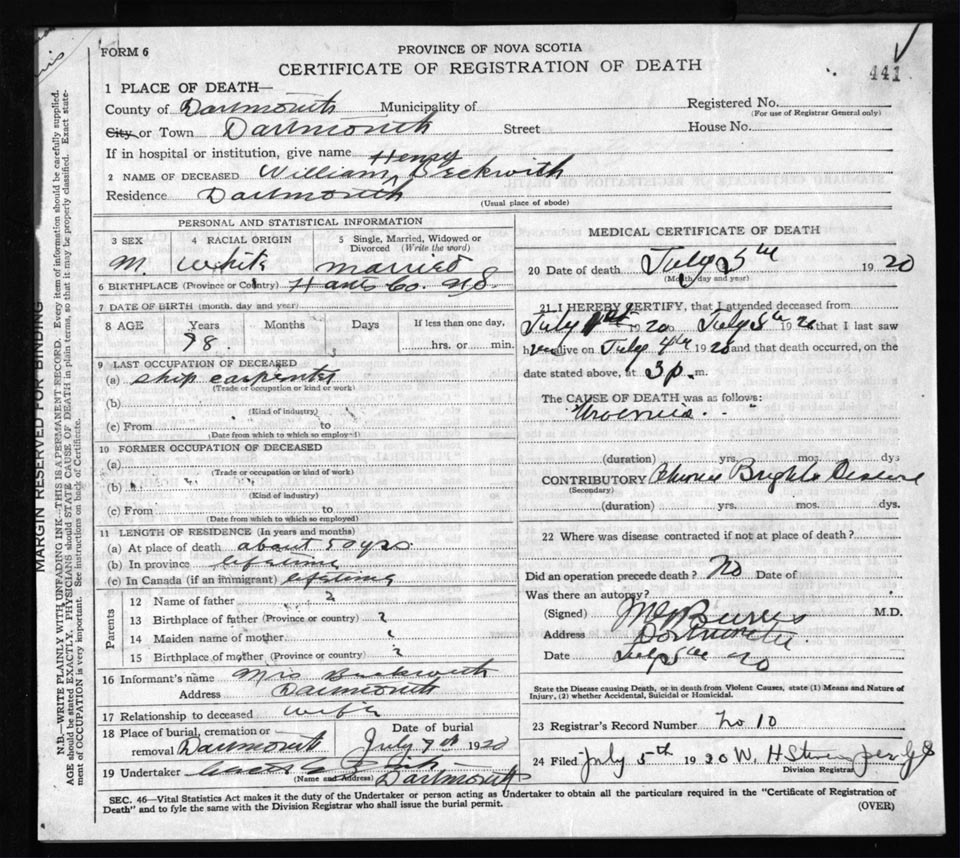 FORM 6
PROVINCE OF NOVA SCOTIA
CERTIFICATE OF REGISTRATION OF DEATH
441
1 PLACE OF DEATH—
County of Dartmouth Municipality of
Registered No.
(For use of Registrar General only)
City or Town Dartmouth Street House No.
If in hospital or institution, give name
Henry
2 NAME OF DECEASED William Beckwith
Residence Dartmouth
(Usual place of abode)
PERSONAL AND STATISTICAL INFORMATION
3 SEX 4 RACIAL ORIGIN 5 Single, Married, Widowed or Divorced (Write the word)
M. White married
6 BIRTHPLACE (Province or Country) Hants Co. N.S.
7 DATE OF BIRTH (month, day and year)
8 AGE Years Months Days If less than one day,
78 hrs. or min.
9 LAST OCCUPATION OF DECEASED
(a) ship carpenter
(Trade or occupation or kind or work)
(b)
(Kind of industry)
(c) From to
(Date from which to which so employed)
10 FORMER OCCUPATION OF DECEASED
(a)
(Trade or occupation or kind of work)
(b)
(Kind of industry)
(c) From to
(Date from which to which so employed)
11 LENGTH OF RESIDENCE (In years and months)
(a) At place of death about 50 yrs
(b) In province lifetime
(c) In Canada (if an immigrant) lifetime
Parents
12 Name of father ?
13 Birthplace of father (Province or country) ?
14 Maiden name of mother ?
15 Birthplace of mother (Province or country) ?
16 Informant's name Mrs Beckwith
Address Dartmouth
17 Relationship to deceased wife
18 Place of burial, cremation or removal Dartmouth Date of burial July 7th 1920
19 Undertaker
(Name and Address) Dartmouth
MEDICAL CERTIFICATE OF DEATH
20 Date of death July 5th 1920
(Month, day and year)
21 I HEREBY CERTIFY, that I attended deceased from
July 1st 1920 to July 5th 1920 that I last saw
h alive on July 4th 1920 and that death occurred, on the
date stated above, at 3 p. m.
The CAUSE OF DEATH was as follows:
Uroemis
(duration) yrs. mos. dys
CONTRIBUTORY Chronic Brights Disease
(Secondary)
(duration) yrs. mos. dys.
22 Where was disease contracted if not at place of death?
Did an operation precede death? No Date of
Was there an autopsy?
(Signed) Burris M.D.
Address Dartmouth
Date July 5th 20
State the Disease causing Death, or in death from Violent Causes, state (1) Means and Nature of
Injury, (2) whether Accidental, Suicidal or Homicidal.
23 Registrar's Record Number No 10
24 Filed July 5th 1920 W. H
Division Registrar
SEC. 46—Vital Statistics Act makes it the duty of the Undertaker or person acting as Undertaker to obtain all the particulars required in the "Certificate of Registration of
Death" and to fyle the same with the Division Registrar who shall issue the burial permit.
(OVER)
MARGIN RESERVED FOR BINDING
N.B.—WRITE PLAINLY WITH UNFADING INK—THIS IS A PERMANENT RECORD. Every item of information should be carefully supplied.
AGE should be stated EXACTLY. PHYSICIANS should STATE CAUSE OF DEATH in plain terms, so that it may be properly classified. Exact state-
ment of OCCUPATION is very important. See instructions on back of Certificate.